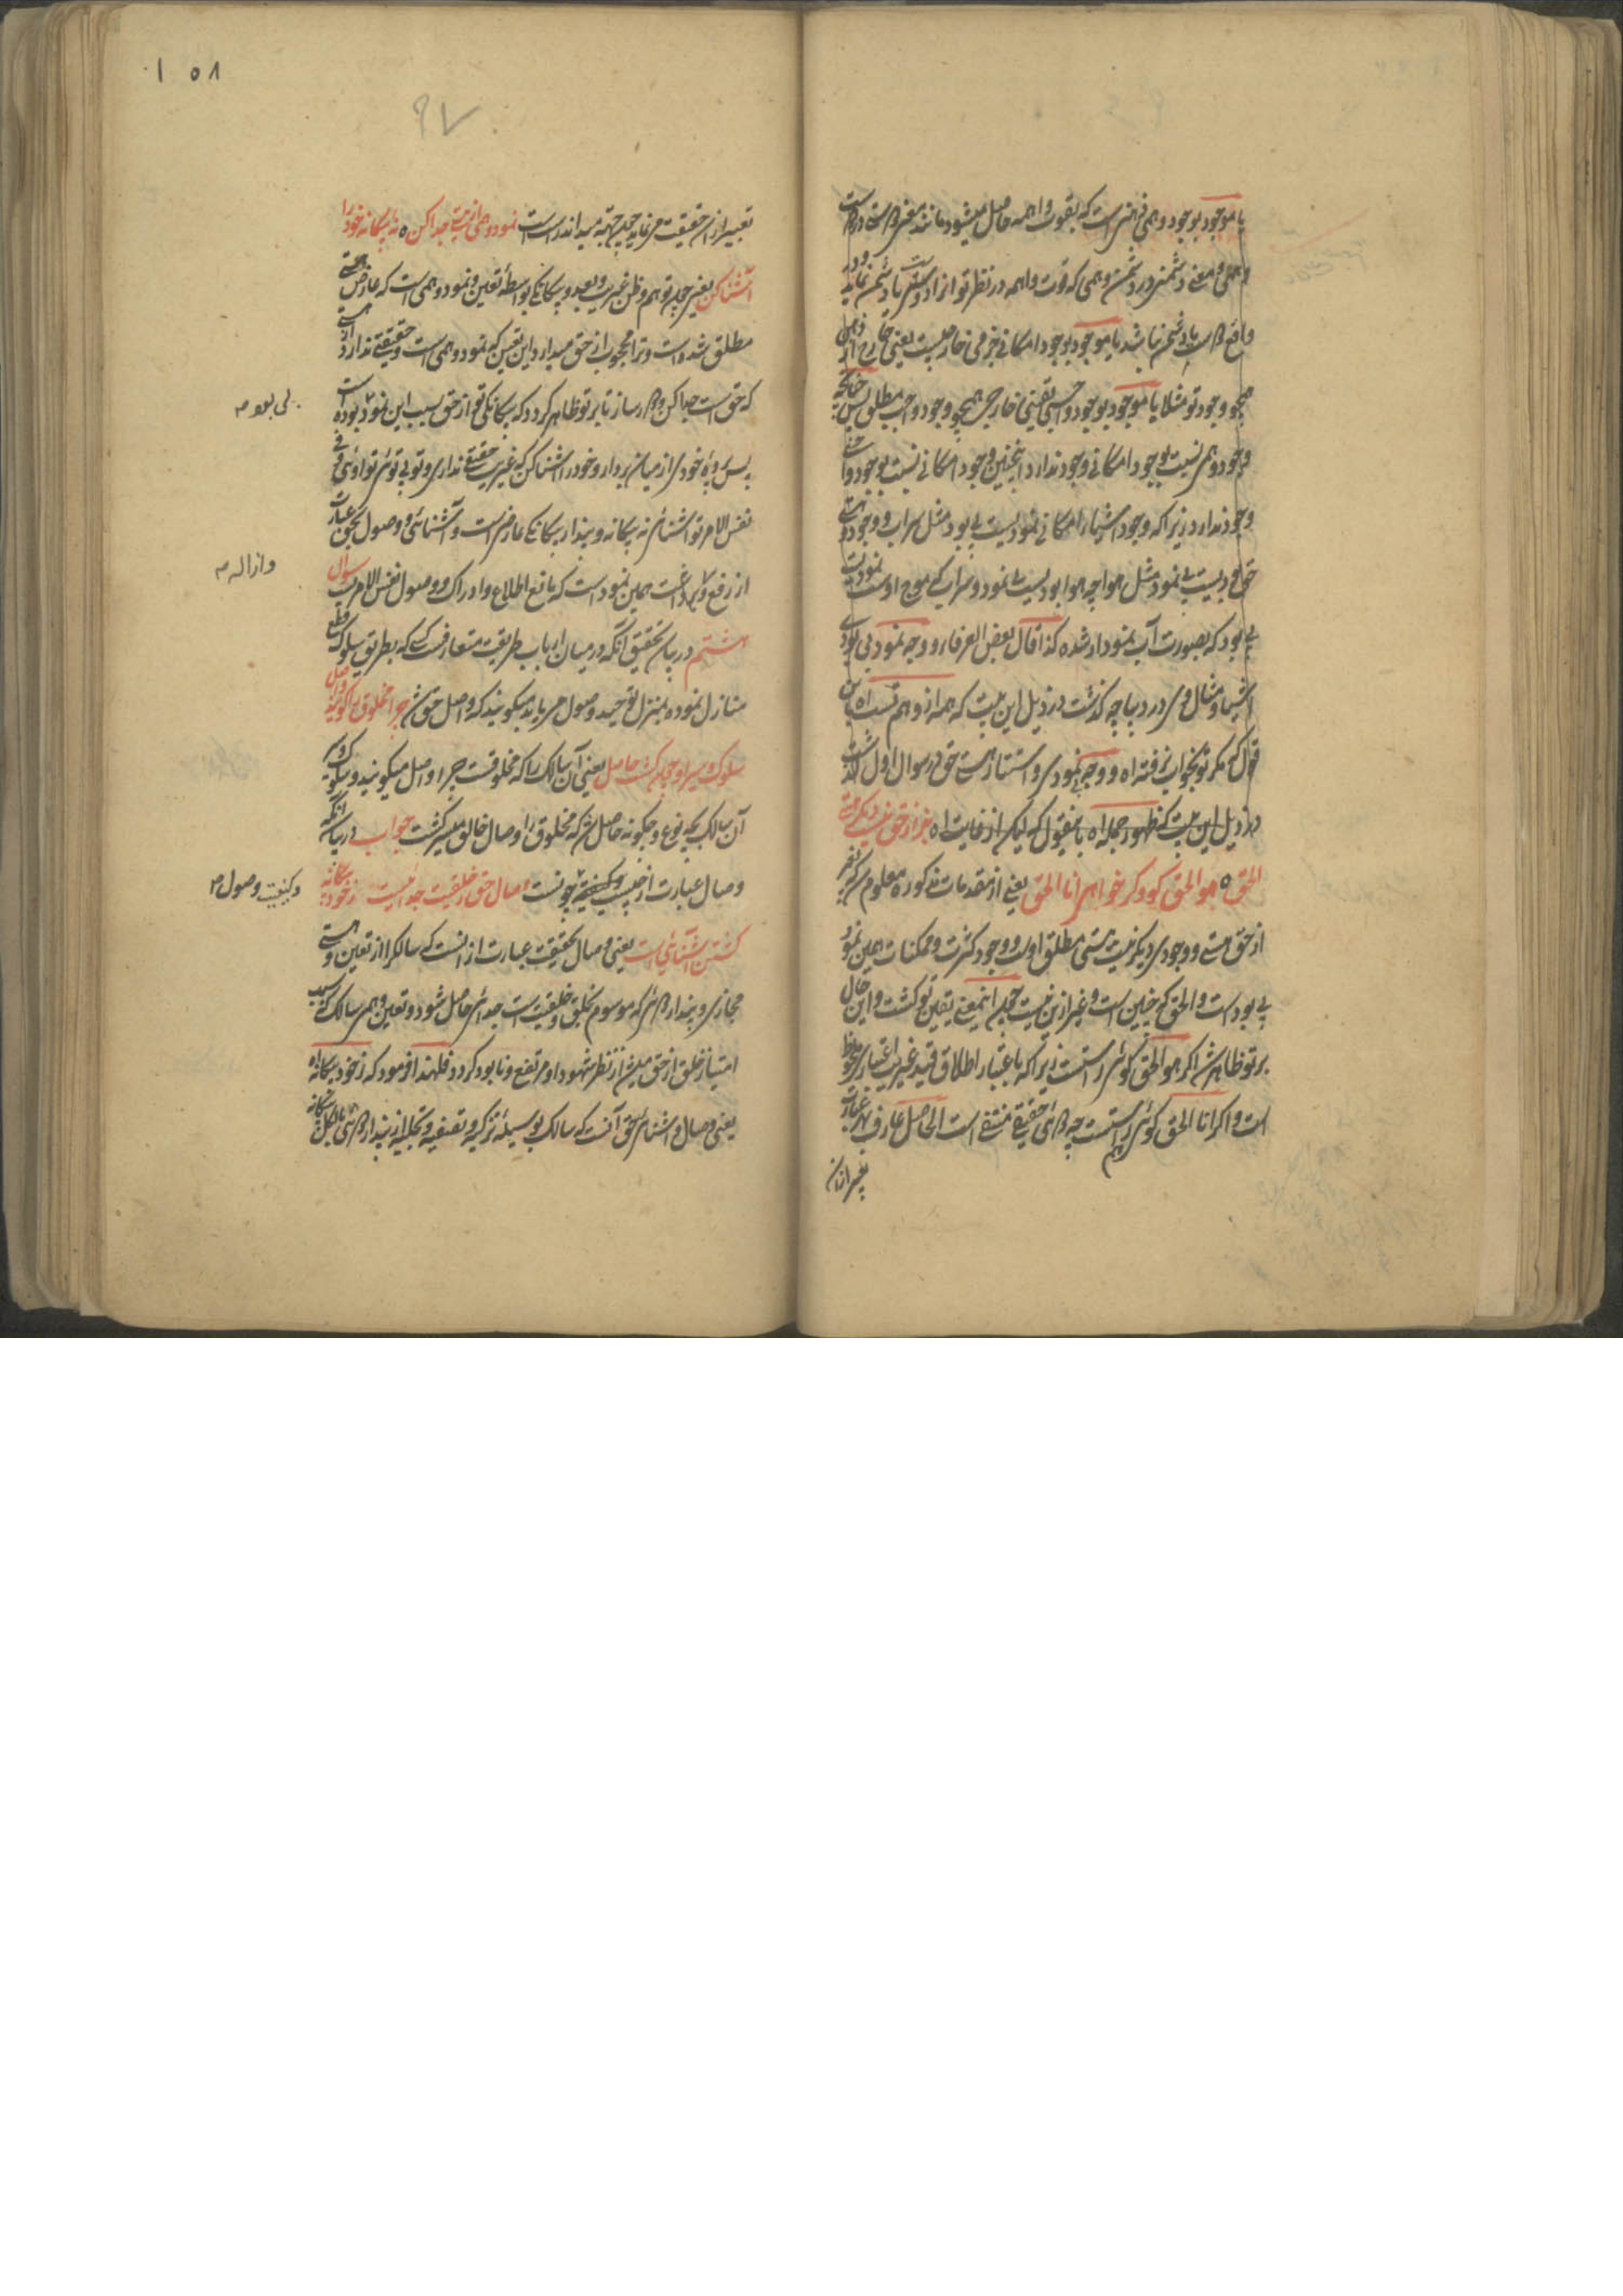 یا موجود بوجود وهمی فرضی است که بقوت واهمه حاصل میشود مانند
وهمی و معنی دشمنی در دشمن وهمی که قوت واهمه در نظر تو او را دشمن نماید و در
واقع دشمن نباشد یا موجود بوجود امکانی خارجیست یعنی خارج از ذهن
همچو وجود تو مثلا یا موجود بوجود واجبی حقیقی خارجی همچو وجود واجب مطلق پس چنانچه
وجود وهمی نسبت بوجود امکانی وجود ندارد اینچنین وجود امکانی نسبت بوجود واجبی
وجود ندارد زیرا که وجود اشیاء امکانی نمودیست بی بود مثل سراب و وجود
حق بودیست بی نمود مثل هوا چه هوا بودیست بی نمود و سراب که موج اوست نمودیست
بی بود که بصورت آب نمودار شده کذا قال بعض العرفاء و وجه نمود بی بودی
اشیا و مثال وی در دیباچه گذشت در ذیل این بیت که همه از وهم تست اه پس
قول که مگر تو بخواب رفته اه و وجه بی نمودی و استتار هستی حق در سوال اول گذشت
در ذیل این بیت که ظهور جمله اه بیقول که لیکن از غایت اه بجز از حق نیست دیگر هستی
الحق ٥ هو الحق گو و گر خواهی انا الحق یعنی از مقدمات مذکوره معلوم شد که بغیر
از حق هستی و وجودی دیگر نیست هستی مطلق اوست و وجود کثرت و ممکنات همین نمود
بی بود است و الحق که چنین است و غیر ازین نیست چون اینمعنی یقین تو گشت و این حال
بر تو ظاهر شد اگر هو الحق گوئی راست است زیرا که باعتبار اطلاق و تقید غیریت اعتباری ملحوظ
است و اگر انا الحق گوئی راست است چه دوئی حقیقی منتفی است الحاصل عارف بهر عبارت
تعبیر ازان
١٥٨
٩٧
تعبیر ازان حقیقت می نماید چون جهتی میداند راست است نمود وهمی از هستی جدا کن ٥ نه بیگانه خود را
آشنا کن یعنی چون توهم و ظن غیریت و بعد و بیگانگی بواسطه تعین و نمود وهمی است که عارض هستی
مطلق شده است و ترا محجوب از حق میدارد این تعین که نمود وهمی است و حقیقتی ندارد از هستی
که حق است جدا کن و دور ساز تا بر تو ظاهر گردد که بیگانگی تو از حق بسبب این نمود بوده است
بی بود م
پس پرده خودی از میان بردار و خود را آشنا کن که غیریت حقیقتی نداری و تو بی توئی تو اوئی و فی
نفس الامر تو آشنائی نه بیگانه و پندار بیگانگی عارضی است و آشنائی و وصول بحق عبارت
از رفع و برداشت همین نمود است که مانع اطلاع و ادراک و وصول نفس الامریست سوال
و ازاله م
هشتم در بیان تحقیق آنکه در میان ارباب طریقت متعارفست که بطریق سلوک قطع
منازل نموده بمنزل توحید و وصول می رباید میگویند که واصل حق شد چرا مخلوق را گویند واصل
سلوک و سیر او چون گشت حاصل یعنی آن سالک را که مخلوقست چرا واصل میگویند و سلوک و سیر
آن سالک بچه نوع و چگونه حاصل شد که مخلوق را وصال خالق میسر گشت جواب در بیان آنکه
وصال عبارت از چیست و چونست وصال حق ز خلقیت جدائیست ز خود بیگانه
و کیفیت وصول م
گشتن آشنائی است یعنی وصال بحقیقت عبارت از آنست که سالک را از تعین و هستی
مجازی و پندار دوئی که موسوم بخلق و خلقیت است جدائی حاصل شود و تعین وهمی سالک که سبب
امتیاز خلق از حق میشد از نظر شهود او مرتفع و نابود گردد و فلهذا فرمود که ز خود بیگانه اه
یعنی وصال و آشنائی بحق آنست که سالک بوسیله تزکیه و تصفیه و تجلیه از پندار دوئی بالکل بیگانه